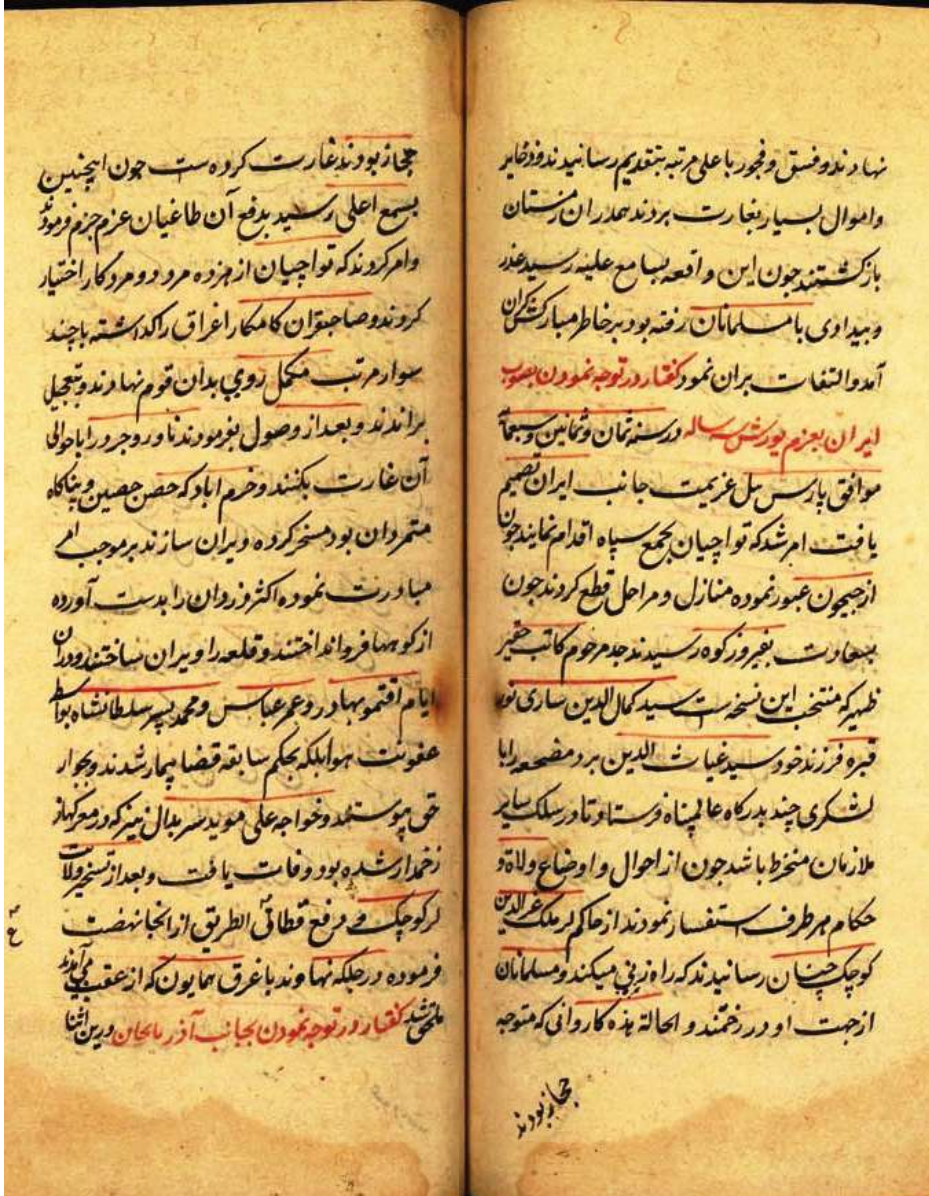 نهادند و فسق و فجور باعلی مرتبه بتقدیم رسانیدند و ذخایر
و اموال بسیار بغارت بردند همدران زمستان
بازکشتند جون این واقعه بسامع علیه رسید عذر
و بیدادی با مسلمانان رفته بود بر خاطر مبارکش کران
آمد و التفات بران نمود کفتار در توجه نمودن بصوب
ایران بعزم یورش سه ساله در سنه ثمان و ثمانین و سبعمایه
موافق پارس ئیل عزیمت جانب ایران تصمیم
یافت امر شد که تواجیان بجمع سپاه اقدام نمایند جون
از جیحون عبور نموده منازل و مراحل قطع کردند جون
بسعادت بفیروزکوه رسیدند جد مرحوم کاتب حقیر
ظهیر که منتخب این نسخه است سید کمال الدین ساری نور
قبره فرزند خود سید غیاث الدین برد مضجعه رابا
لشکری چند بدرکاه عالمپناه فرستاد تا در سلک سایر
ملازمان منخرط باشد جون از احوال و اوضاع ولاة و
حکام هر طرف استفسار نمودند از حاکم لر ملک عزالدین
کوچک چنان رسانیدند که راه زنی میکند و مسلمانان
از جهت او در زحمتند و الحالة هذه کاروانی که متوجه
حجاز بودند
حجاز بودند غارت کرده ست جون اینچنین
بسمع اعلی رسید بدفع آن طاغیان عزم جزم فرمودند
و امر کردند که تواچیان از هر ده مرد دو مرد کار اختیار
کردند و صاحبقران کامکار اغراق را کذاشته با چند
سوار مرتب مکمل روی بدان قوم نهادند و بتعجیل
براندند و بعد از وصول بفرمودند تا وروجرد را با حوالی
آن غارت بکنند و خرم اباد که حصن حصین و پناه کاه
متمردان بود مسخر کرده ویران سازند بر موجب امر
مبادرت نموده اکثر دزدان را بدست آورده
از کوهها فرو انداختند و قلعه را ویران ساختند و دران
ایام اقتمور بهادر و عمر عباس و محمد پسر سلطانشاه بواسطه
عفونت هوا بلکه بحکم سابقه قضا بیمار شدند و بجوار
حق پیوستند و خواجه علی موید سربدال نیز که در معرکها
زخمدار شده بود وفات یافت و بعد از تسخیر ولایت
لر کوچک و رفع قطاع الطریق از انجا نهضت
فرموده در جلکه نهاوند با غرق همایون که از عقب می آمدند
ملحق شد کفتار در توجه نمودن بجانب آذربایجان درین اثنا